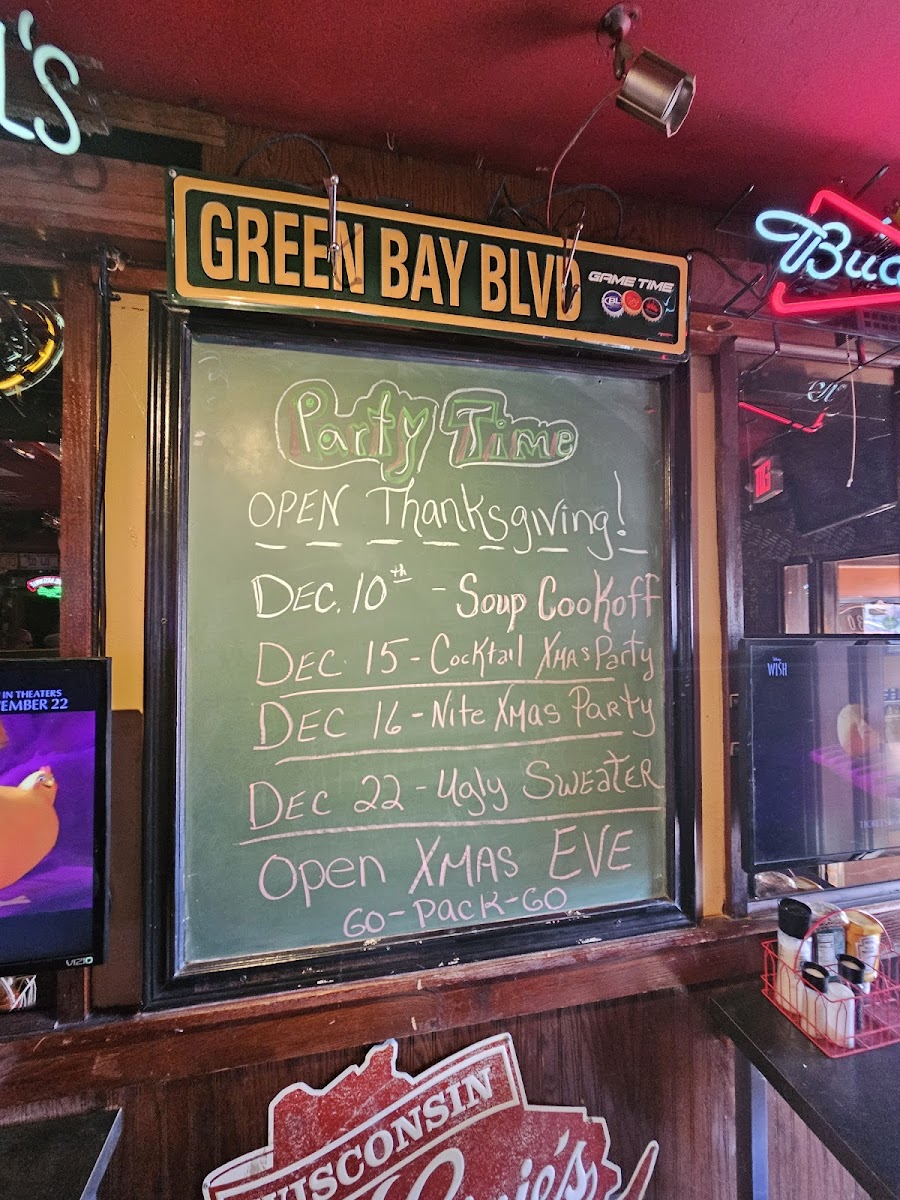 L'S
GREEN BAY BLVD
GAME TIME
Bud
Party Time
OPEN Thanksgiving!
DEC. 10th - Soup CooKoff
DEC. 15 - Cocktail XMAS Party
DEC 16 - Nite XMAS Party
DEC 22 - Ugly SWEATER
Open XMAS EVE
GO-PACK-GO
IN THEATERS
EMBER 22
VIZIO
WISH
WISCONSIN